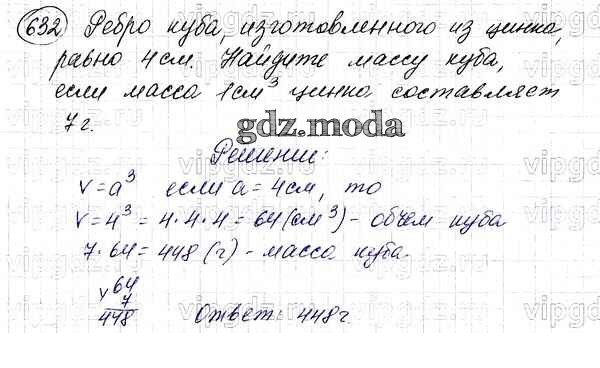 632 Ребро куба, изготовленного из цинка,
равно 4 см. Найдите массу куба,
если масса 1 см³ цинка составляет
7 г.
gdz.moda
Решение:
V = a³ если a = 4 см, то
V = 4³ = 4·4·4 = 64 (см³) - объем куба
7·64 = 448 (г) - масса куба.
× 64
7
448 Ответ: 448 г.